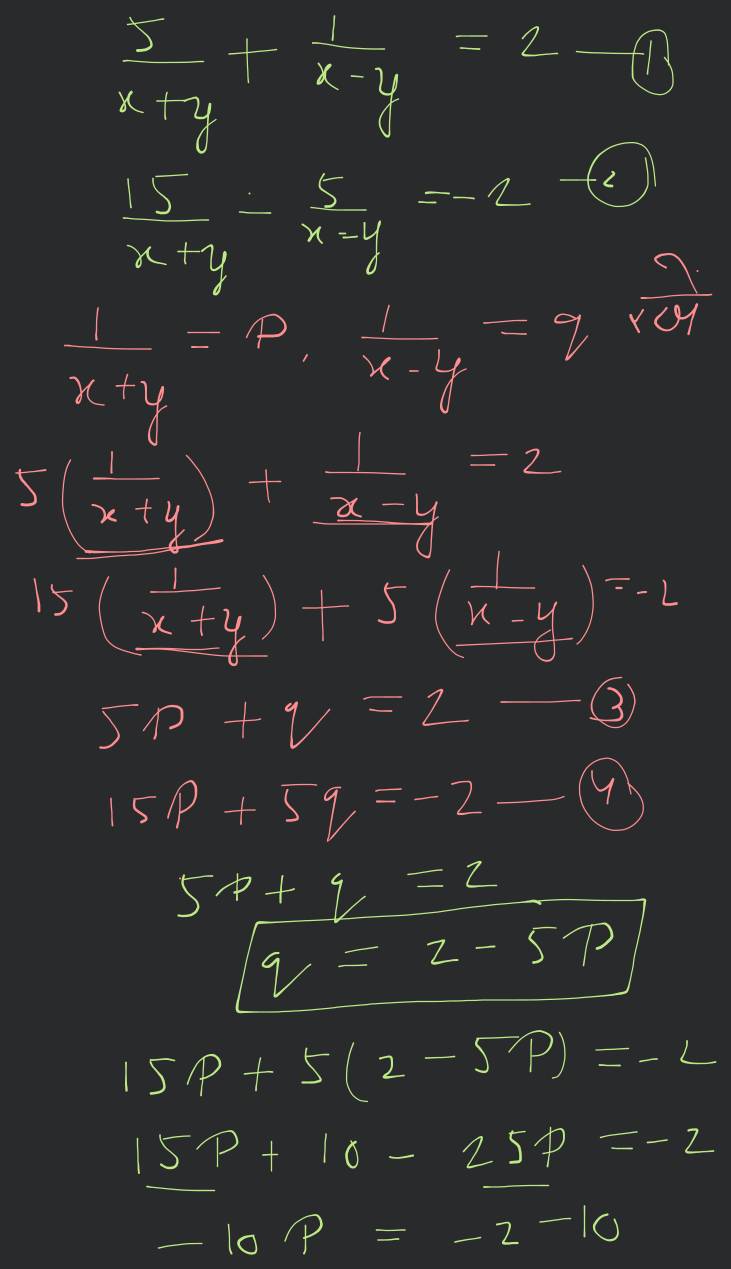 5/(x+y) + 1/(x-y) = 2 — ①
15/(x+y) - 5/(x-y) = -2 — ②
1/(x+y) = P, 1/(x-y) = q
5(1/(x+y)) + 1/(x-y) = 2
15(1/(x+y)) + 5(1/(x-y)) = -2
5P + q = 2 — ③
15P + 5q = -2 — ④
5P + q = 2
q = 2 - 5P
15P + 5(2 - 5P) = -2
15P + 10 - 25P = -2
-10P = -2 -10